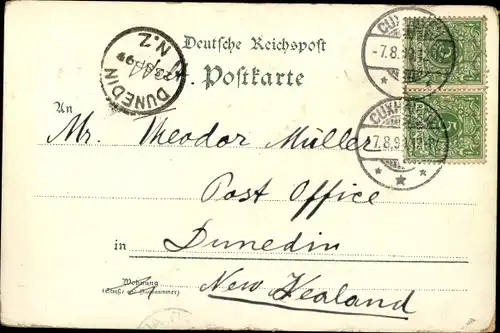 Deutsche Reichspost
Postkarte
DUNEDIN
N.Z.
CUXHAVEN
-7.8.99
CUXHAVEN
7.8.99
An
Mr. Theodor Müller
Post Office
in Dunedin
Wohnung
(Straße und Hausnummer)
New Zealand